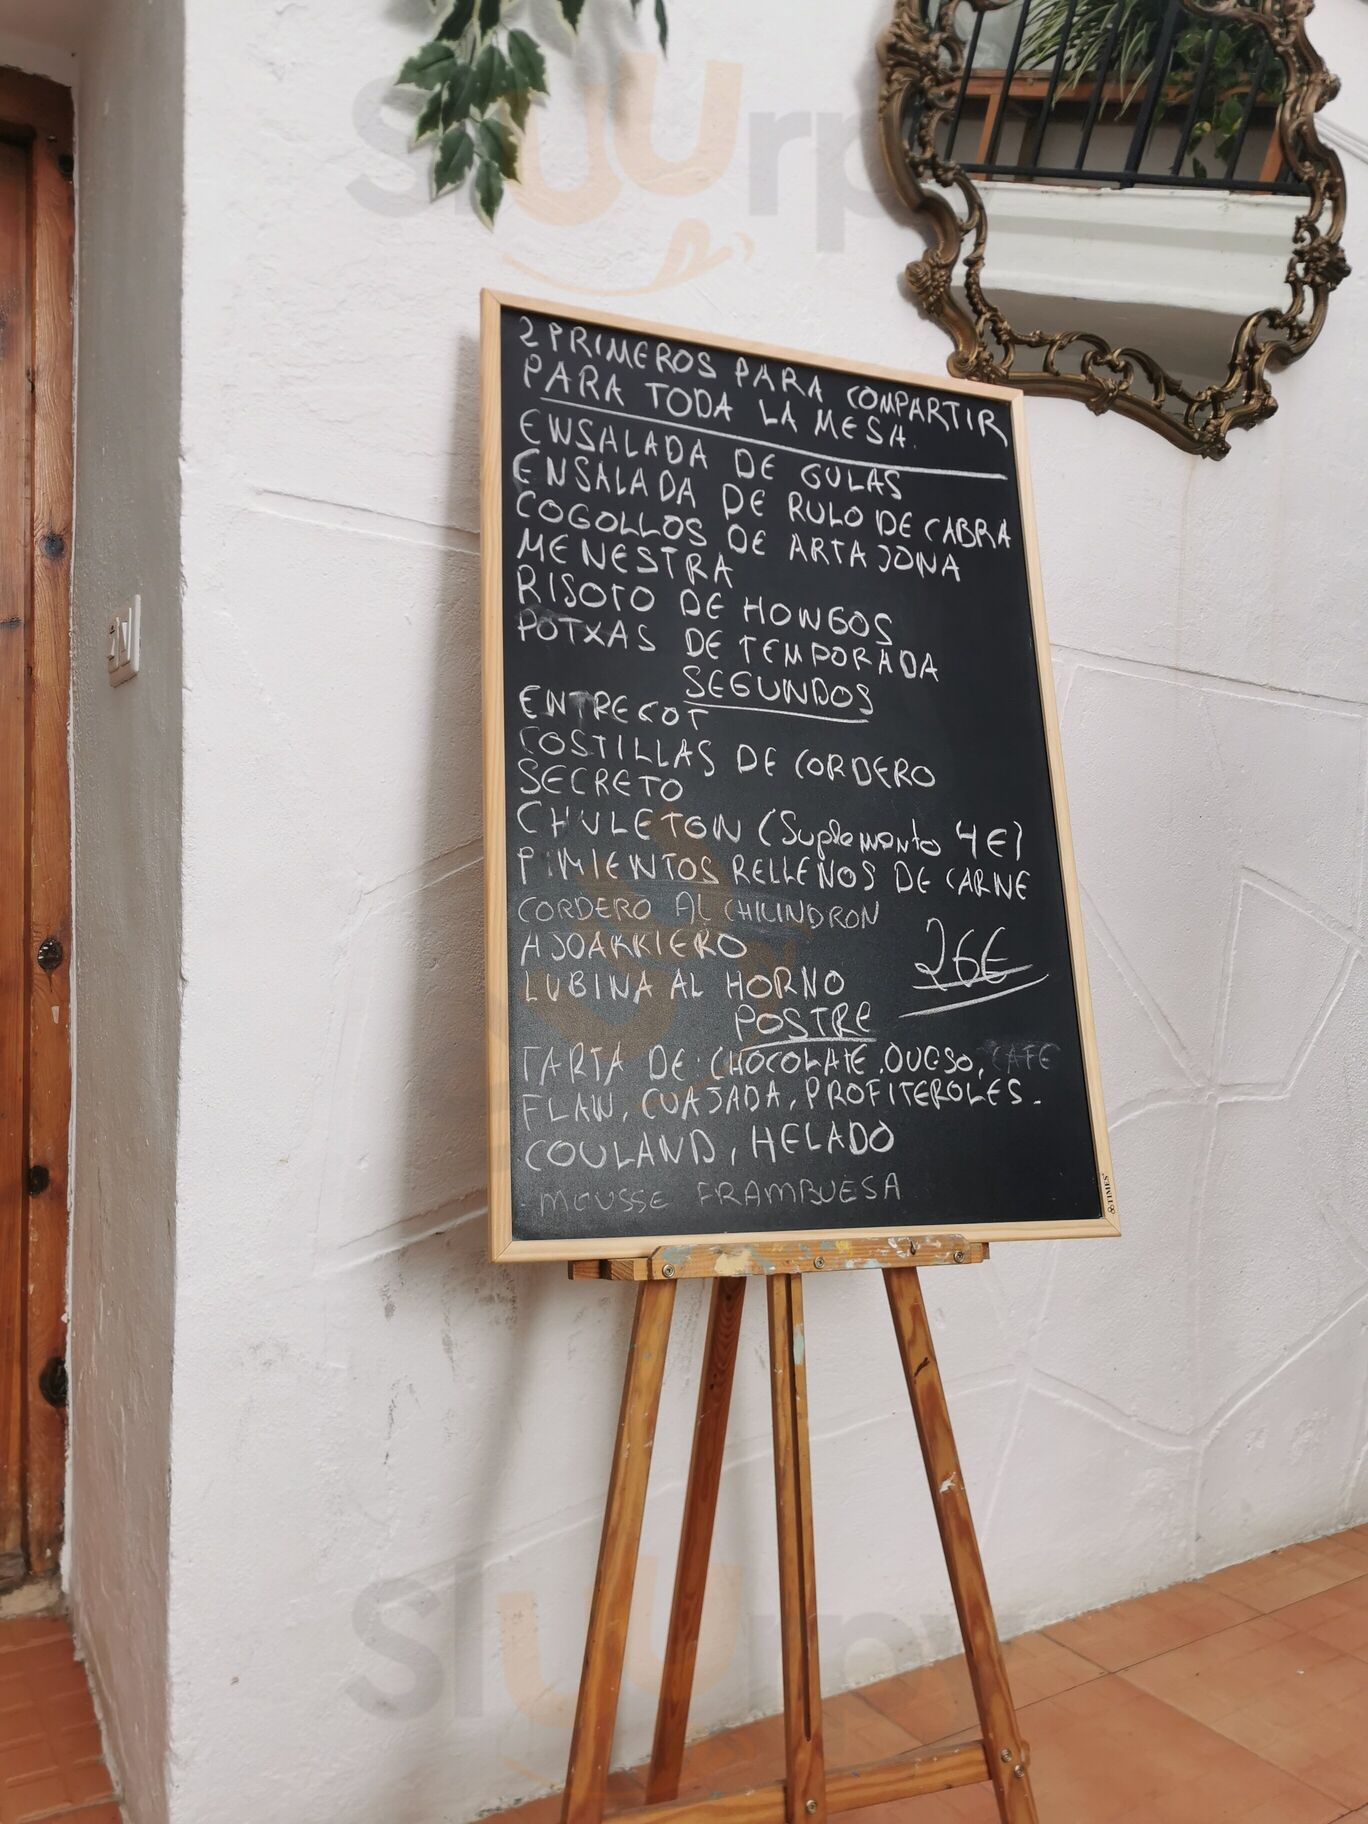 Sluurpy
2 PRIMEROS PARA COMPARTIR
PARA TODA LA MESA.
ENSALADA DE GULAS
ENSALADA DE RULO DE CABRA
COGOLLOS DE ARTAJONA
MENESTRA
RISOTO DE HONGOS
POTXAS DE TEMPORADA
SEGUNDOS
ENTRECOT
COSTILLAS DE CORDERO
SECRETO
CHULETON (Suplemento 4€)
PIMIENTOS RELLENOS DE CARNE
CORDERO AL CHILINDRON
AJOARRIERO
26€
LUBINA AL HORNO
POSTRE
TARTA DE: CHOCOLATE, QUESO, CAFE
FLAN, CUAJADA, PROFITEROLES.
COULAND, HELADO
MOUSSE FRAMBUESA
TIMES
Sluurpy